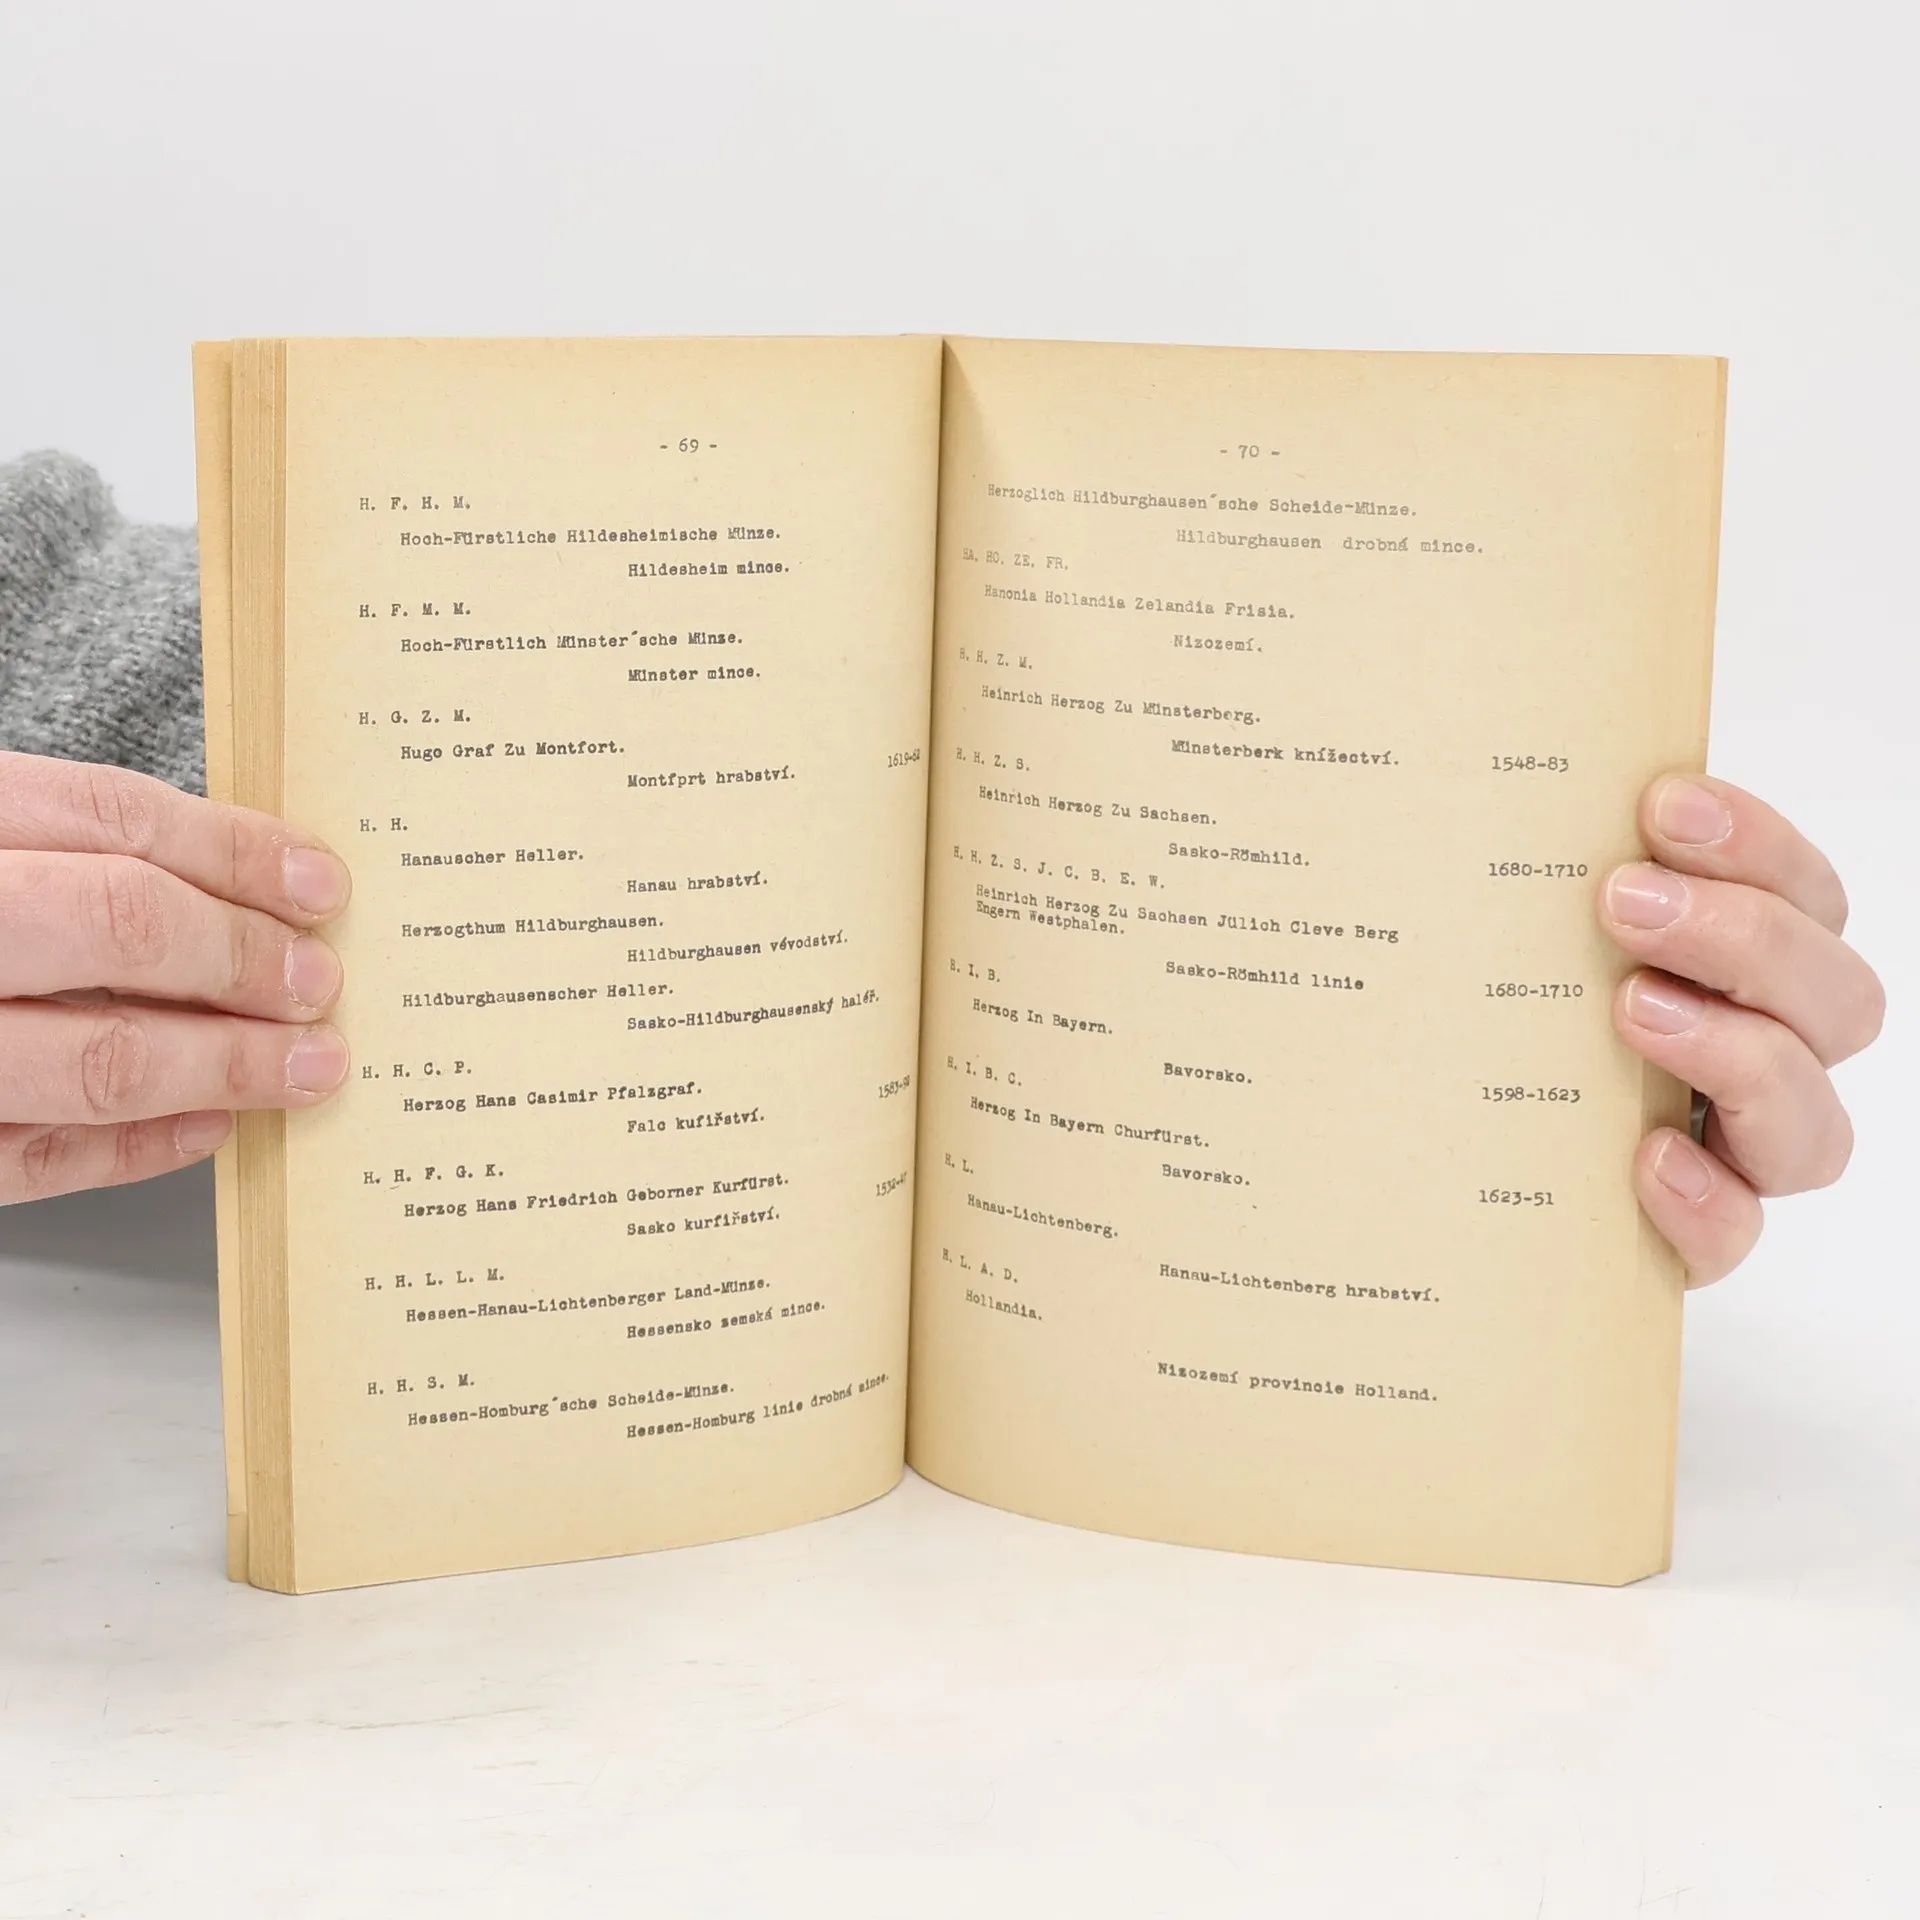 - 69 -
H. F. H. M.
Hoch-Fürstliche Hildesheimische Münze.
Hildesheim mince.
H. F. M. M.
Hoch-Fürstlich Münster´sche Münze.
Münster mince.
H. G. Z. M.
Hugo Graf Zu Montfort.
Montfprt hrabství. 1619-62
H. H.
Hanauscher Heller.
Hanau hrabství.
Herzogthum Hildburghausen.
Hildburghausen vévodství.
Hildburghausenscher Heller.
Sasko-Hildburghausenský haléř.
H. H. C. P.
Herzog Hans Casimir Pfalzgraf.
Falc kufiřství. 1583-92
H. H. F. G. K.
Herzog Hans Friedrich Geborner Kurfürst.
Sasko kurfiřství. 1532-47
H. H. L. L. M.
Hessen-Hanau-Lichtenberger Land-Münze.
Hessensko zemská mince.
H. H. S. M.
Hessen-Homburg´sche Scheide-Münze.
Hessen-Homburg linie drobná mince.
- 70 -
Herzoglich Hildburghausen´sche Scheide-Münze.
Hildburghausen drobná mince.
HA. HO. ZE. FR.
Hanonia Hollandia Zelandia Frisia.
Nizozemí.
H. H. Z. M.
Heinrich Herzog Zu Münsterberg.
Münsterberk knížectví. 1548-83
H. H. Z. S.
Heinrich Herzog Zu Sachsen.
Sasko-Römhild. 1680-1710
H. H. Z. S. J. C. B. E. W.
Heinrich Herzog Zu Sachsen Jülich Cleve Berg
Engern Westphalen.
Sasko-Römhild linie 1680-1710
H. I. B.
Herzog In Bayern.
Bavorsko. 1598-1623
H. I. B. C.
Herzog In Bayern Churfürst.
Bavorsko. 1623-51
H. L.
Hanau-Lichtenberg.
Hanau-Lichtenberg hrabství.
H. L. A. D.
Hollandia.
Nizozemí provincie Holland.